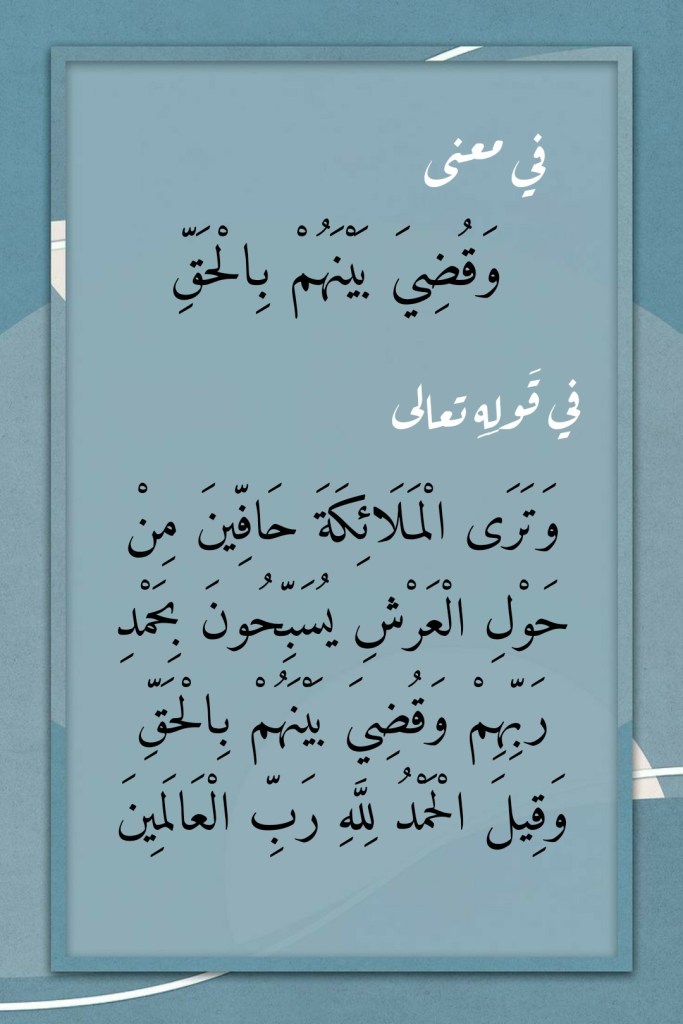 في معنى
وَقُضِيَ بَيْنَهُمْ بِالْحَقِّ
في قَولِهِ تعالى
وَتَرَى الْمَلَائِكَةَ حَافِّينَ مِنْ
حَوْلِ الْعَرْشِ يُسَبِّحُونَ بِحَمْدِ
رَبِّهِمْ وَقُضِيَ بَيْنَهُمْ بِالْحَقِّ
وَقِيلَ الْحَمْدُ لِلَّهِ رَبِّ الْعَالَمِينَ